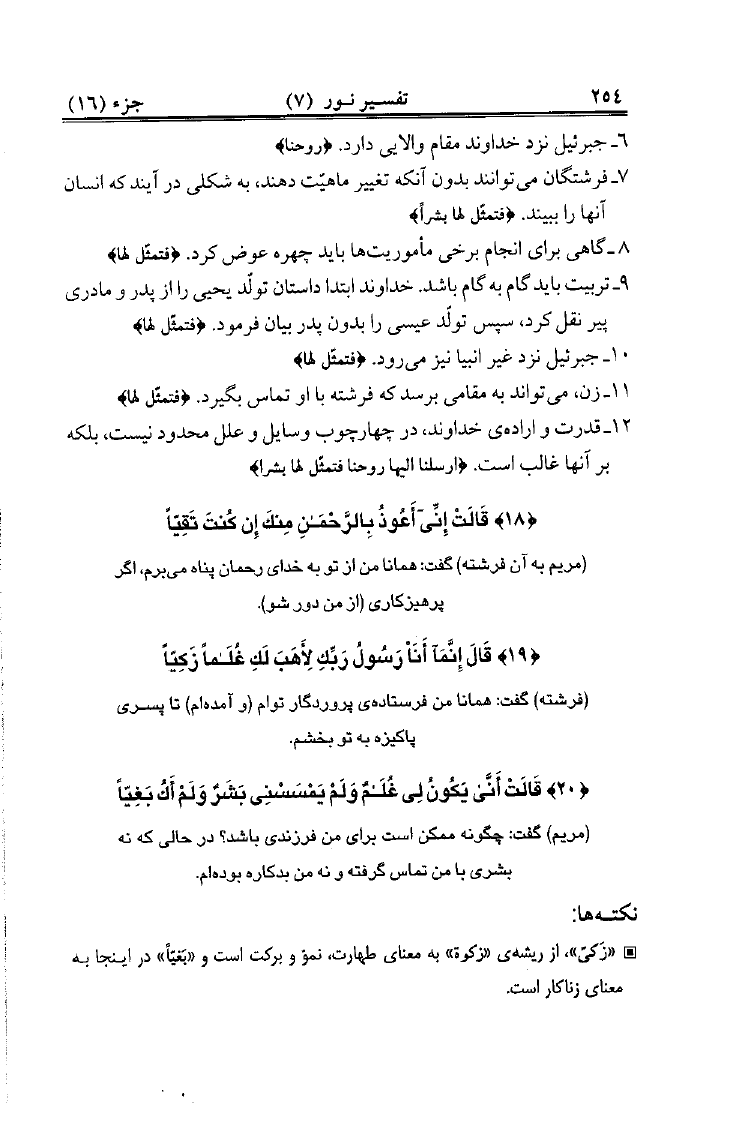 ٢٥٤ تفسیر نور (٧) جزء (١٦)
٦ـ جبرئیل نزد خداوند مقام والایی دارد. ﴿روحنا﴾
٧ـ فرشتگان می‌توانند بدون آنکه تغییر ماهیّت دهند، به شکلی در آیند که انسان
آنها را ببیند. ﴿فتمثّل لها بشراً﴾
٨ـ گاهی برای انجام برخی مأموریت‌ها باید چهره عوض کرد. ﴿فتمثّل لها﴾
٩ـ تربیت باید گام به گام باشد. خداوند ابتدا داستان تولّد یحیی را از پدر و مادری
پیر نقل کرد، سپس تولّد عیسی را بدون پدر بیان فرمود. ﴿فتمثّل لها﴾
١٠ـ جبرئیل نزد غیر انبیا نیز می‌رود. ﴿فتمثّل لها﴾
١١ـ زن، می‌تواند به مقامی برسد که فرشته با او تماس بگیرد. ﴿فتمثّل لها﴾
١٢ـ قدرت و اراده‌ی خداوند، در چهارچوب وسایل و علل محدود نیست، بلکه
بر آنها غالب است. ﴿ارسلنا الیها روحنا فتمثّل لها بشرا﴾
﴿١٨﴾ قَالَتْ إِنِّىٓ أَعُوذُ بِالرَّحْمَـٰنِ مِنكَ إِن كُنتَ تَقِيّاً
(مریم به آن فرشته) گفت: همانا من از تو به خدای رحمان پناه می‌برم، اگر
پرهیزکاری (از من دور شو).
﴿١٩﴾ قَالَ إِنَّمَآ أَنَاْ رَسُولُ رَبِّكِ لِأَهَبَ لَكِ غُلَـٰماً زَكِيّاً
(فرشته) گفت: همانا من فرستاده‌ی پروردگار توام (و آمده‌ام) تا پسری
پاکیزه به تو بخشم.
﴿٢٠﴾ قَالَتْ أَنَّىٰ يَكُونُ لِى غُلَـٰمٌ وَلَمْ يَمْسَسْنِى بَشَرٌ وَلَمْ أَكُ بَغِيّاً
(مریم) گفت: چگونه ممکن است برای من فرزندی باشد؟ در حالی که نه
بشری با من تماس گرفته و نه من بدکاره بوده‌ام.
نکته‌ها:
▣ «زَکیّ»، از ریشه‌ی «زکوة» به معنای طهارت، نموّ و برکت است و «بَغیّاً» در اینجا به
معنای زناکار است.